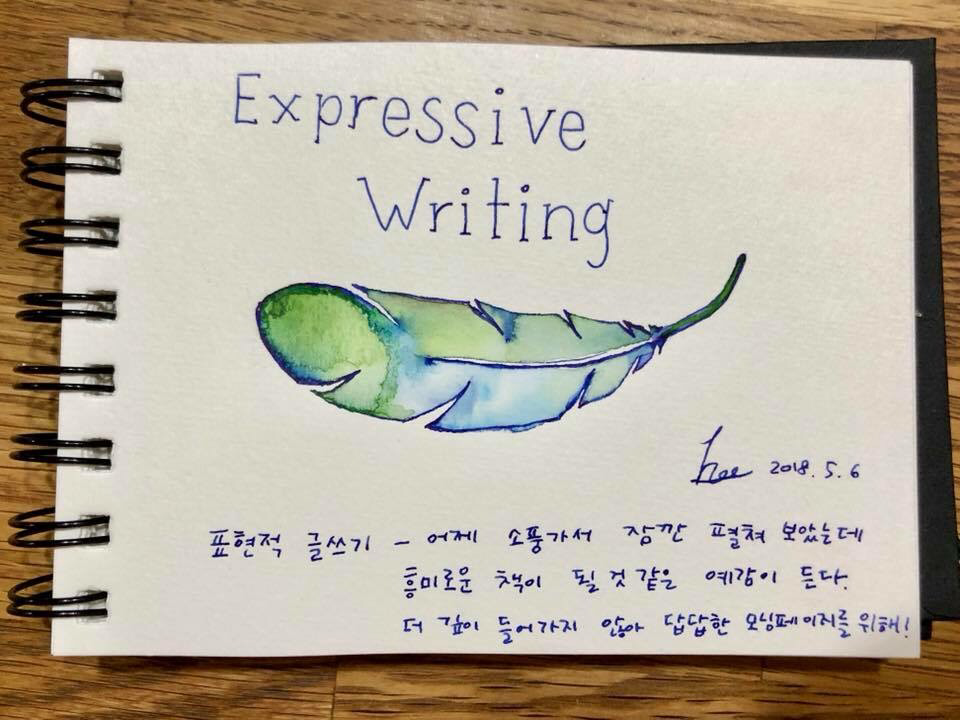 Expressive
Writing
2018. 5. 6
표현적 글쓰기 - 어제 소풍가서 잠깐 펼쳐 보았는데
흥미로운 책이 될 것 같은 예감이 든다.
더 깊이 들어가지 않아 답답한 모닝페이지를 위해!